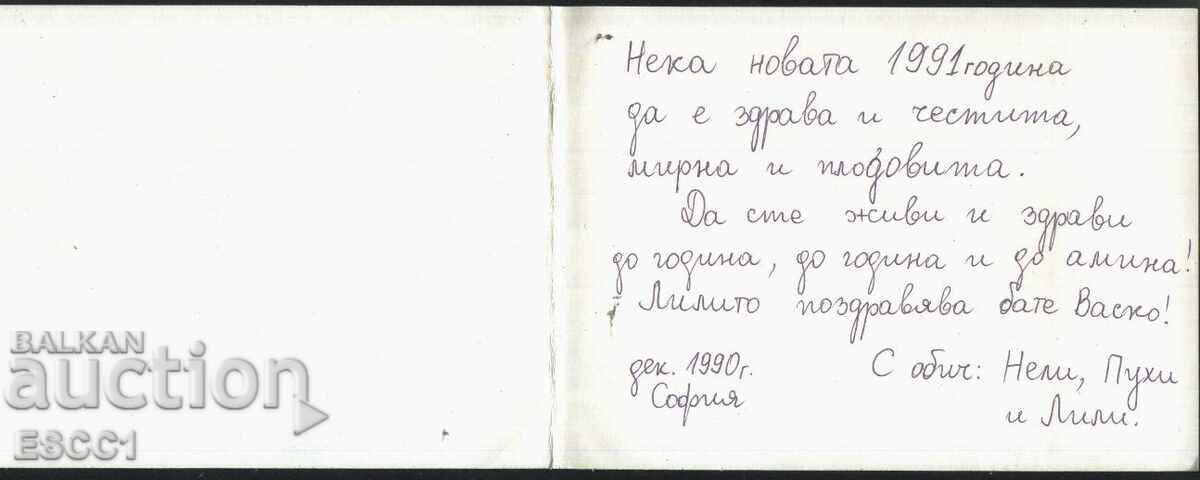 Нека новата 1991 година
да е здрава и честита,
мирна и плодовита.
Да сте живи и здрави
до година, до година и до амина!
Лилито поздравява бате Васко!
дек. 1990г.
София
С обич: Нели, Пухи
и Лили.
BALKAN
auction
ESCC1